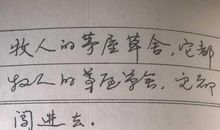 牧人的茅屋草舍,它都
牧人的茅屋草舍,它都
闯进去.